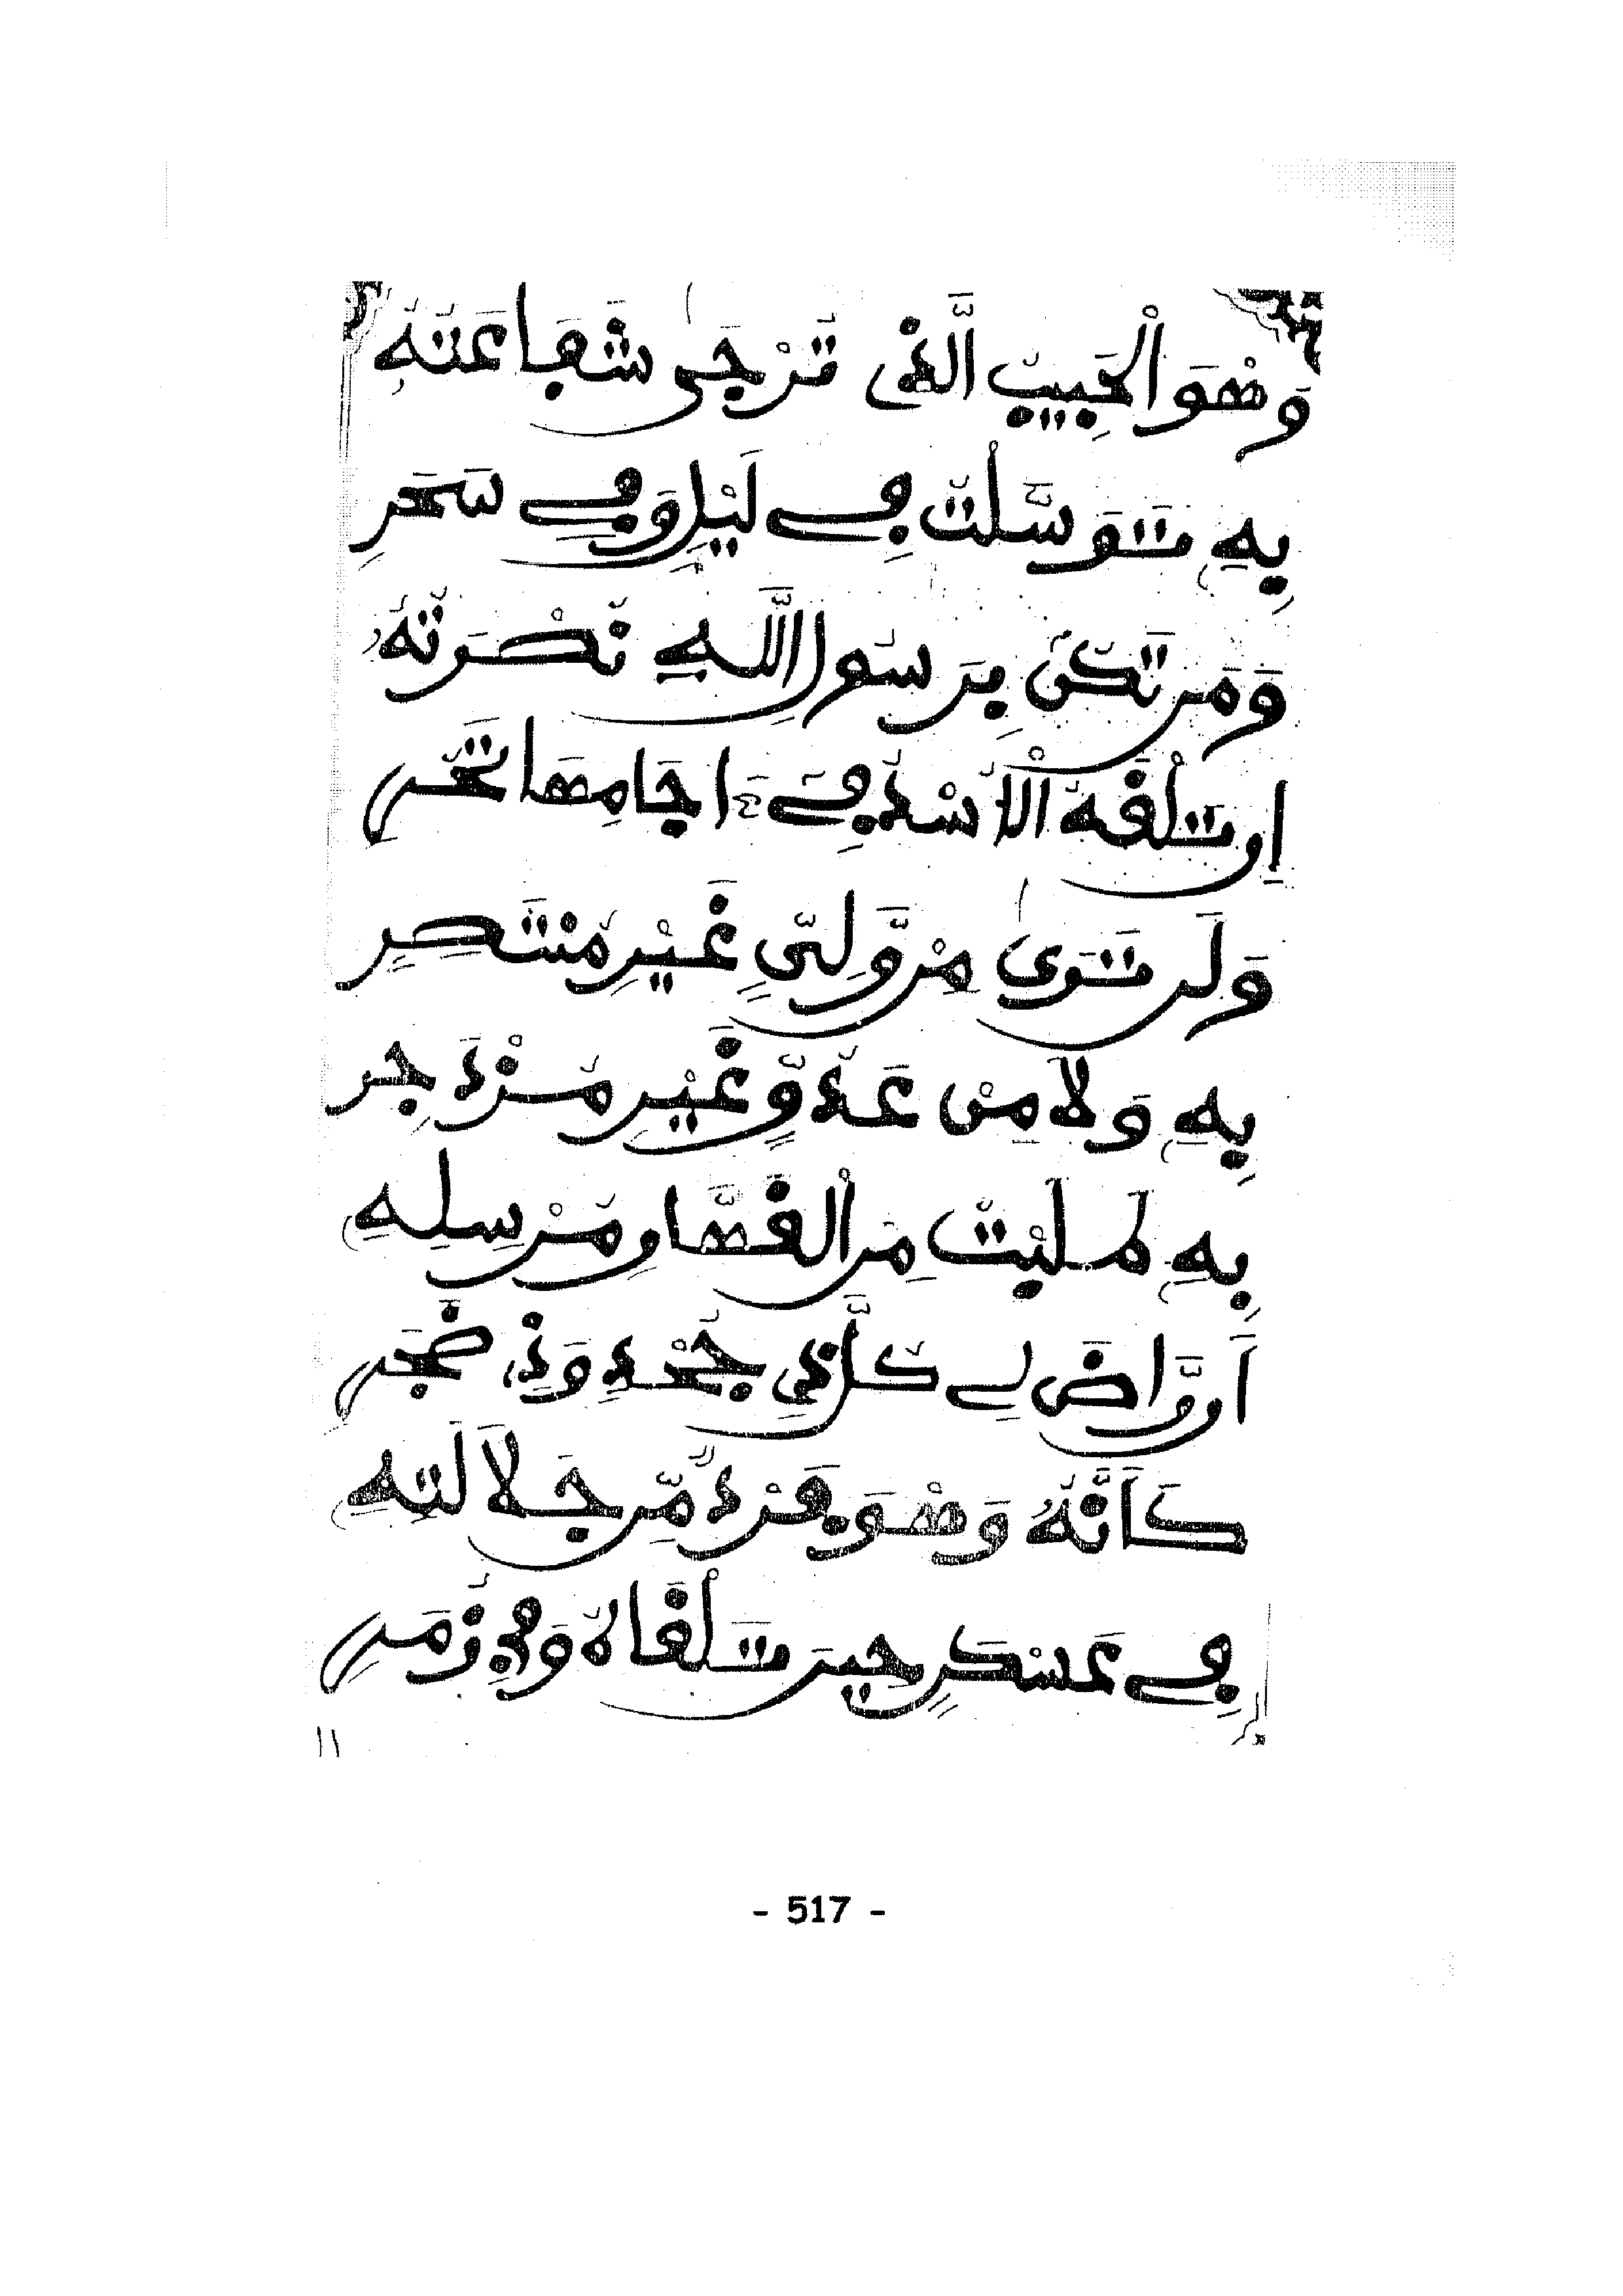 وَهُوَ الْحَبِيبُ الَّذِى تُرْجَىٰ شَفَاعَتُهُ
بِهِ تَوَسَّلْتُ فِے لَيْلٍ وَفِے سَحَرِ
وَمَن تَكُنْ بِرَسُولِ اللَّهِ نُصْرَتُهُ
اِن تَلْقَهُ الْاُسْدُ فِے ءَاجَامِهَا تَخِرِ
وَلَن تَرَىٰ مِنْ وَّلِىٍّ غَيْرِ مُنْتَصِرِ
بِهِ وَلَا مِنْ عَدُوٍّ غَيْرِ مُزْدَجِرِ
بِهِ طَلَبْتُ مِنَ الْقَهَّارِ مُرْسِلِهِ
أَن رَّاضَ لِے كُلَّ ذِى جَحْدٍ وَذِى ضَجَرِ
كَأَنَّهُ وَهْوَ فَرْدٌ مِّن جَلَالَتِهِ
فِے عَسْكَرٍ حِينَ تَلْقَاهُ وَفِى زُمَرِ
- 517 -